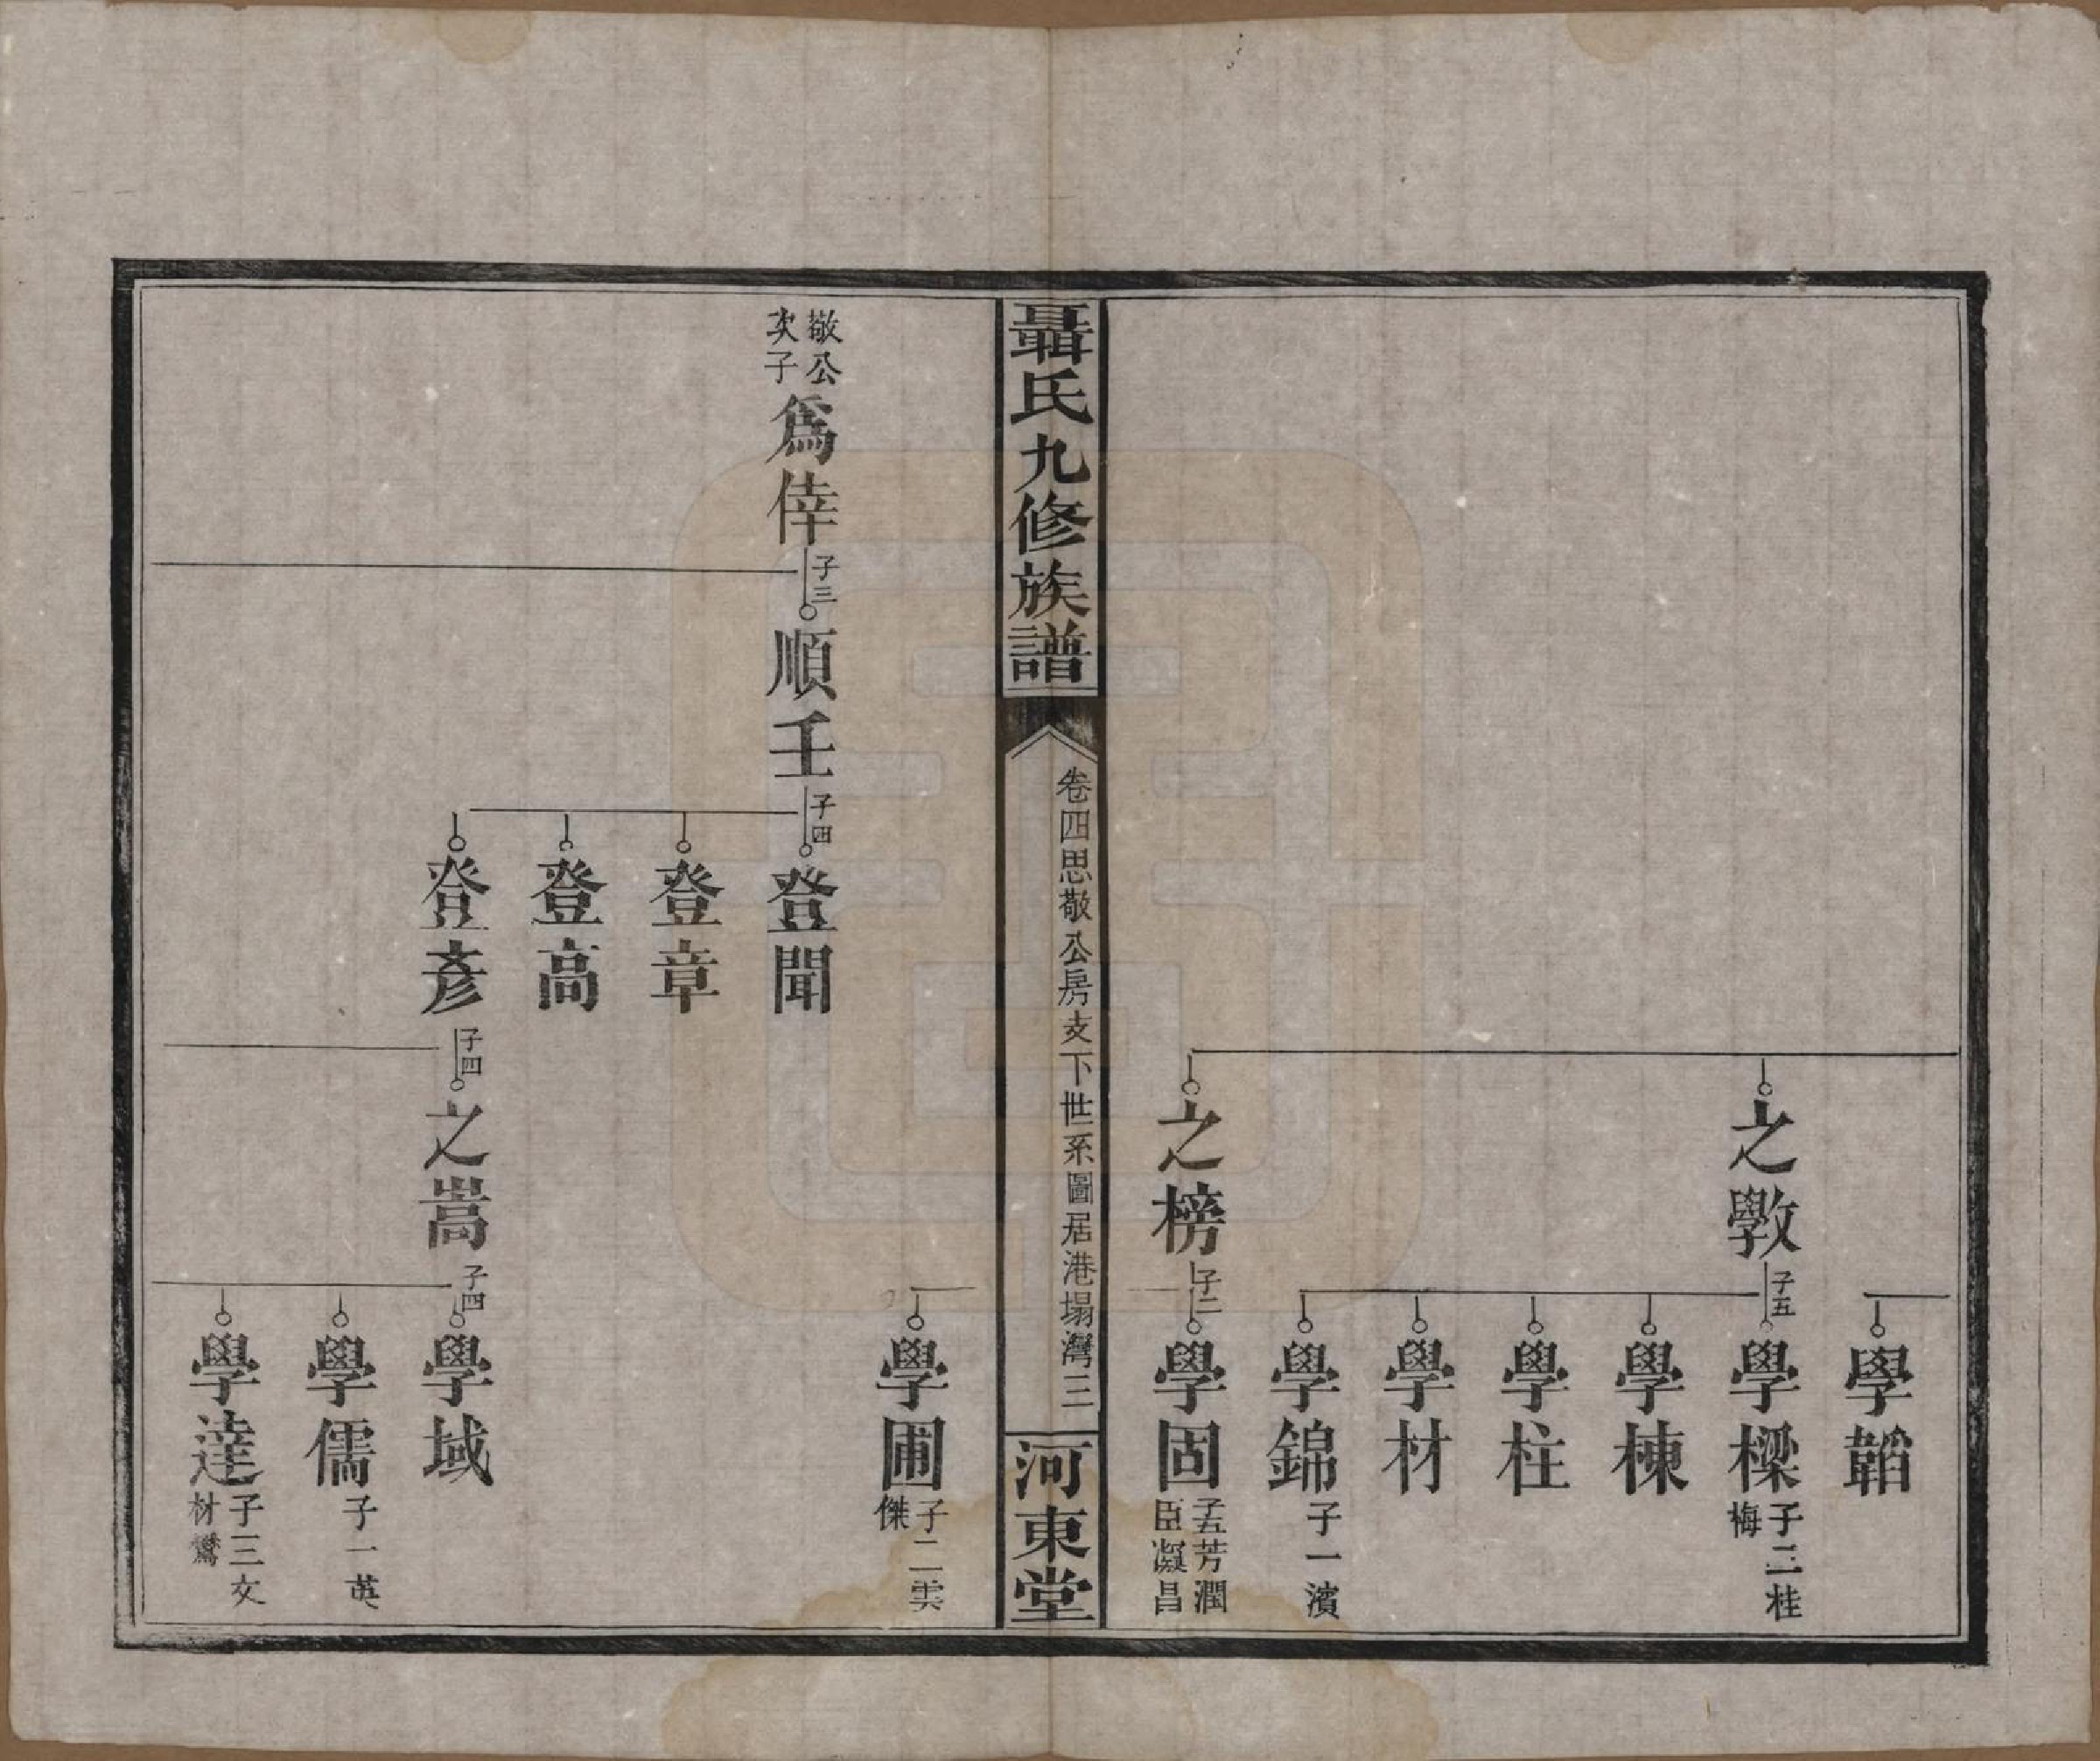 學韜
之斆
子五
學樑
子二桂
梅
學棟
學柱
學材
學錦
子一濱
之榜
子二
學固
子五芳潤
臣凝昌
聶氏九修族譜
卷四思敬公房支下世系圖居港塌灣
三
河東堂
學圃
子二雲
傑
敬公
次子
爲倖
子三
順壬
子四
登聞
登章
登高
登彥
子四
之嵩
子四
學域
學儒
子一英
學達
子三文
材鸞